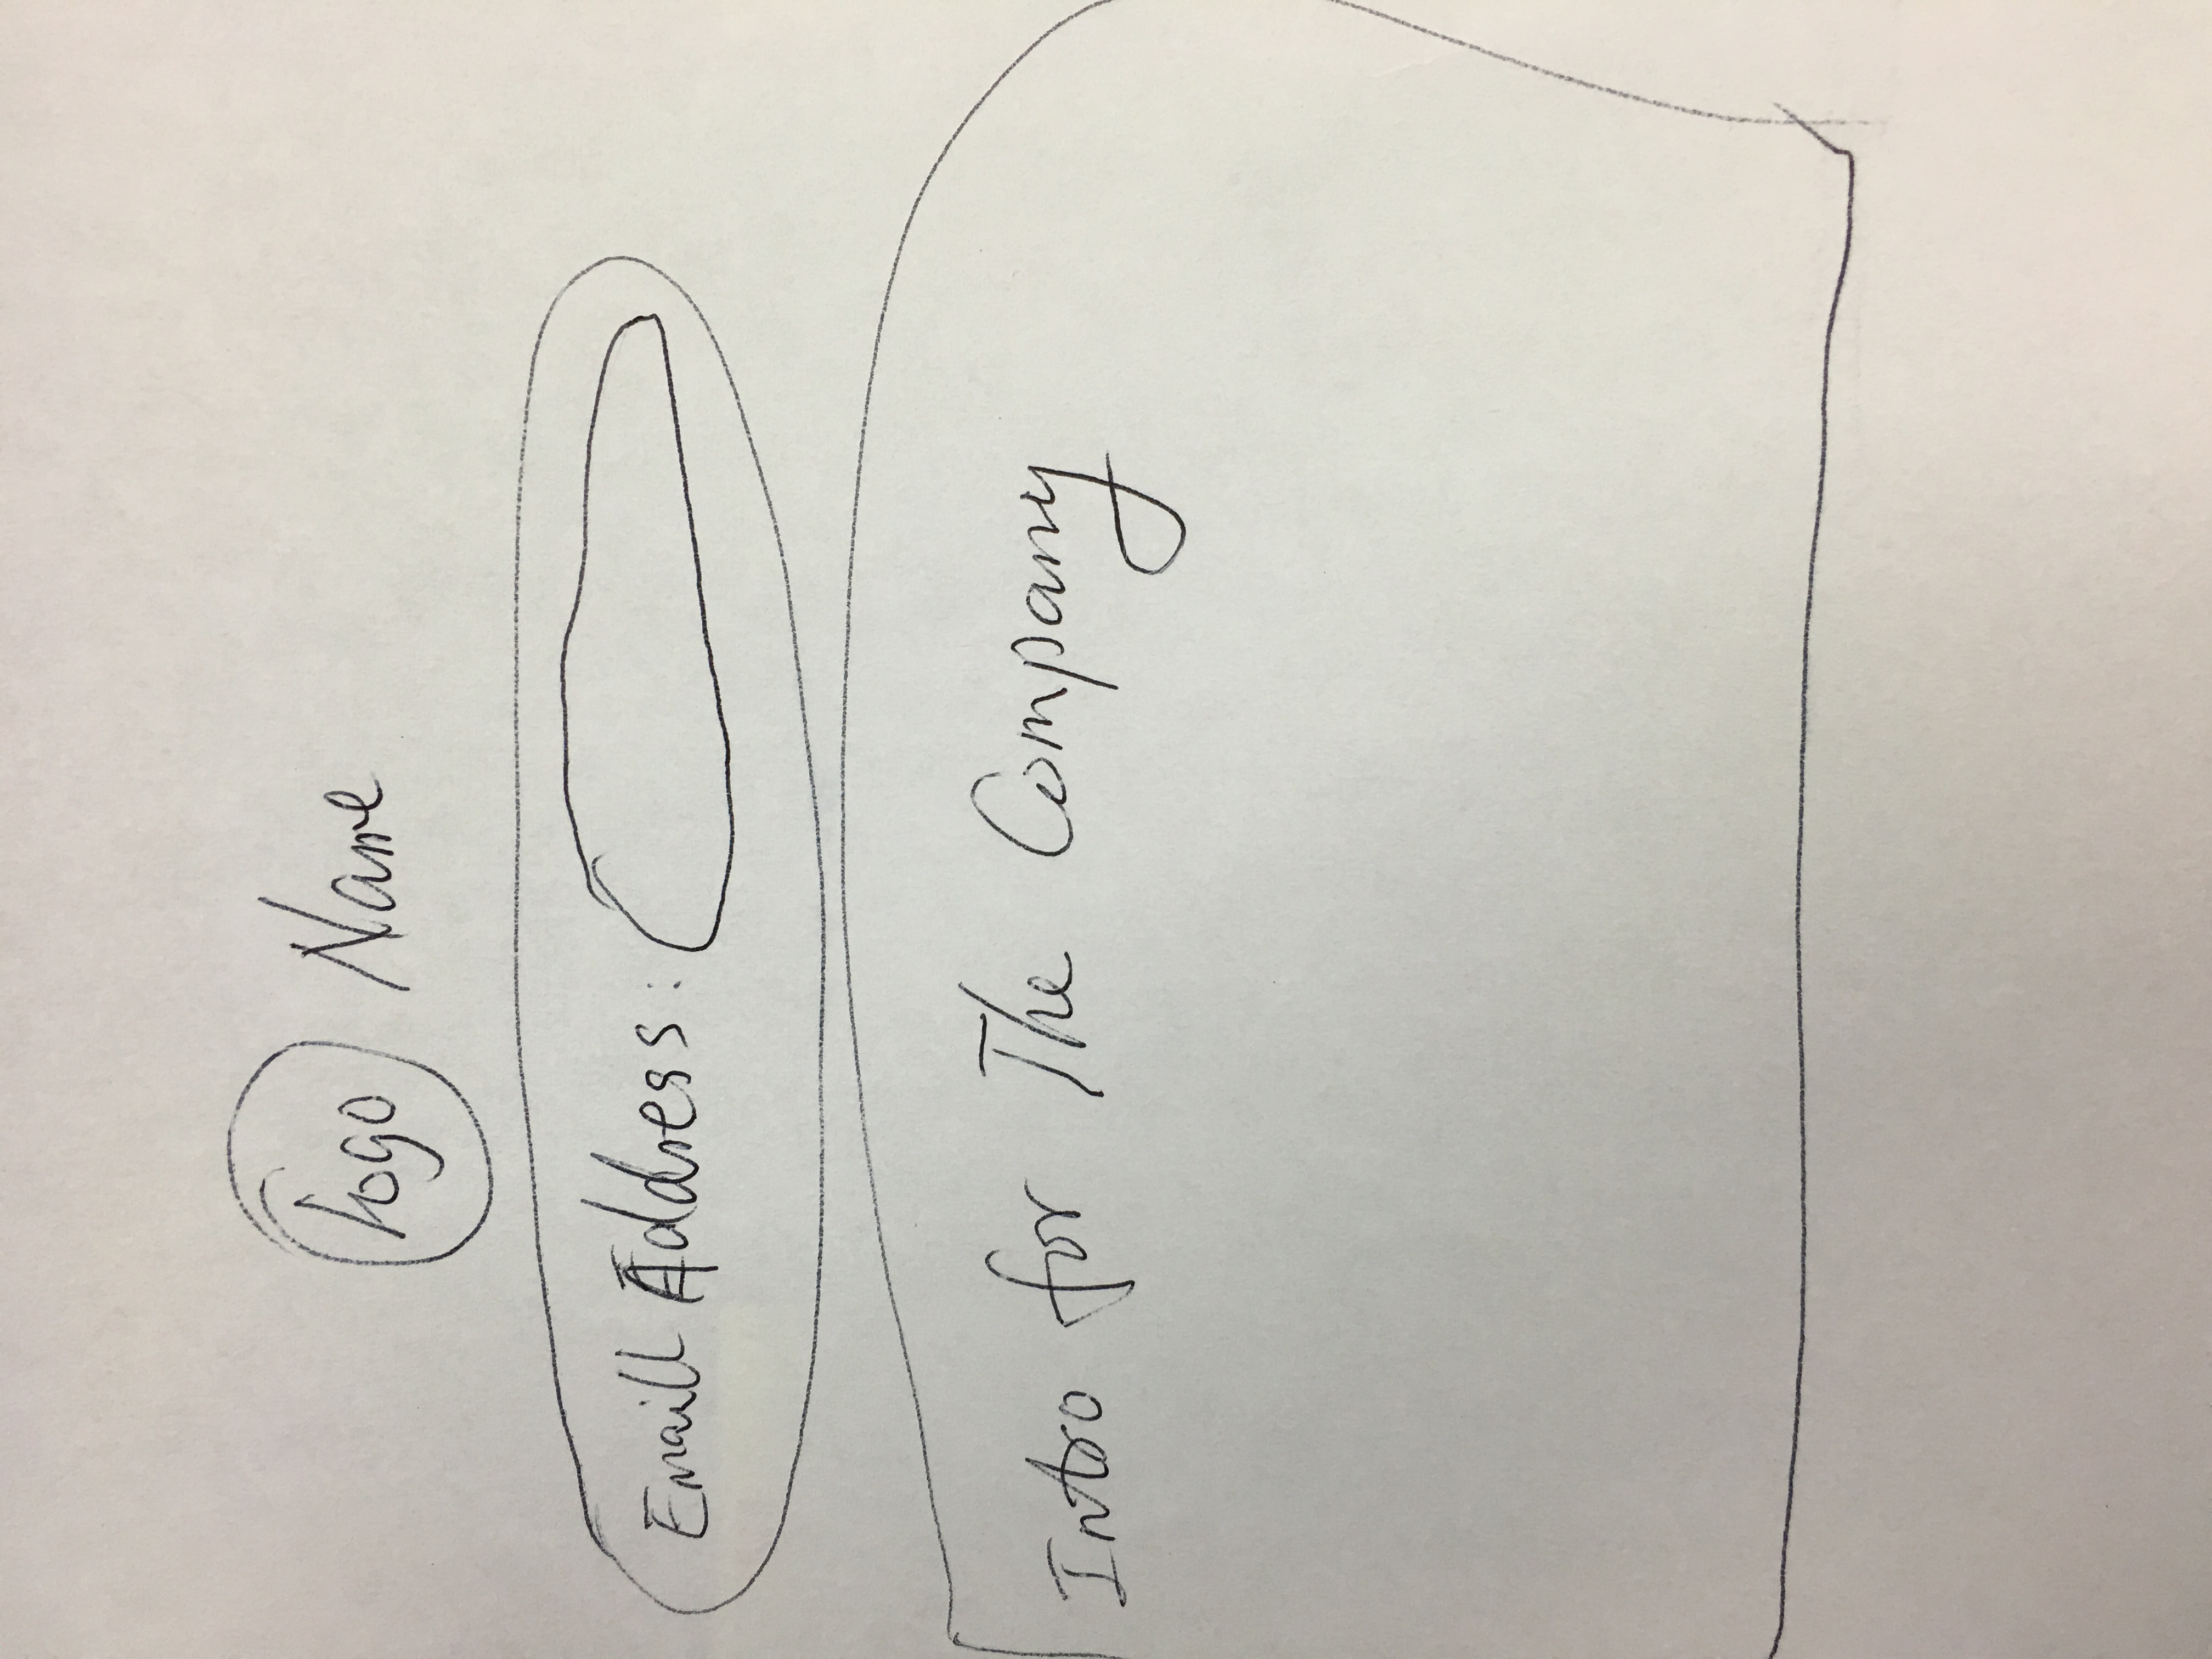 Logo Name
Emaill Address:
Intro for The Company